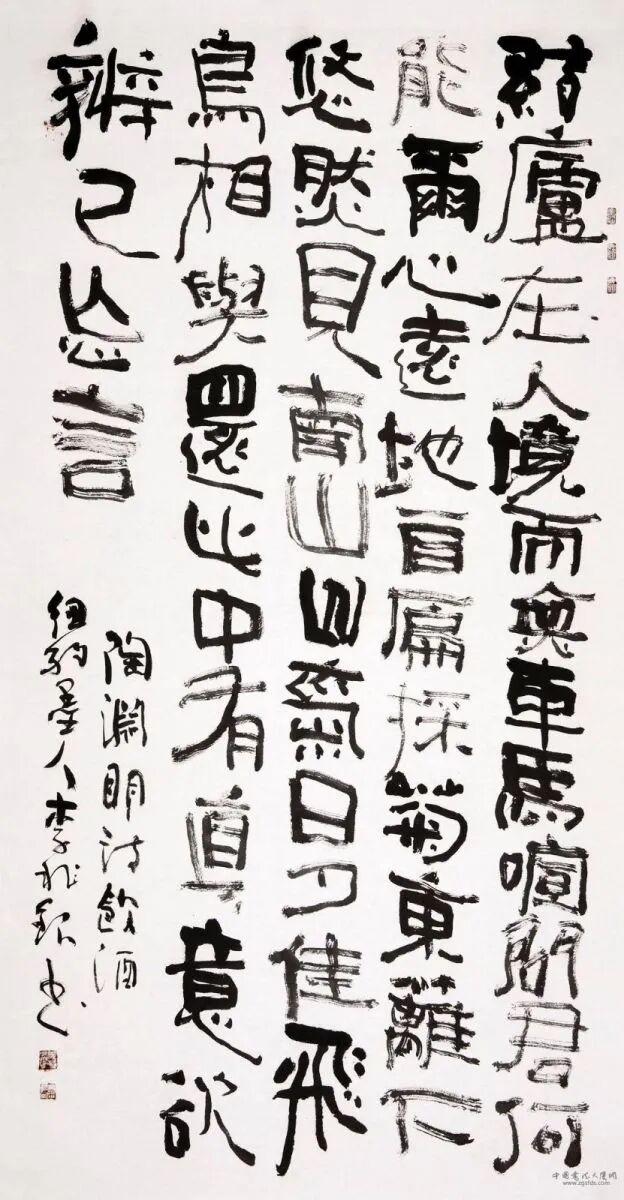 結廬在人境而無車馬喧問君何
能爾心遠地自偏採菊東籬下
悠然見南山山氣日夕佳飛
鳥相與還此中有真意欲
辨已忘言
陶淵明詩飲酒
紐約墨人李兆銀書
中國書法大廈網
www.zgsfds.com